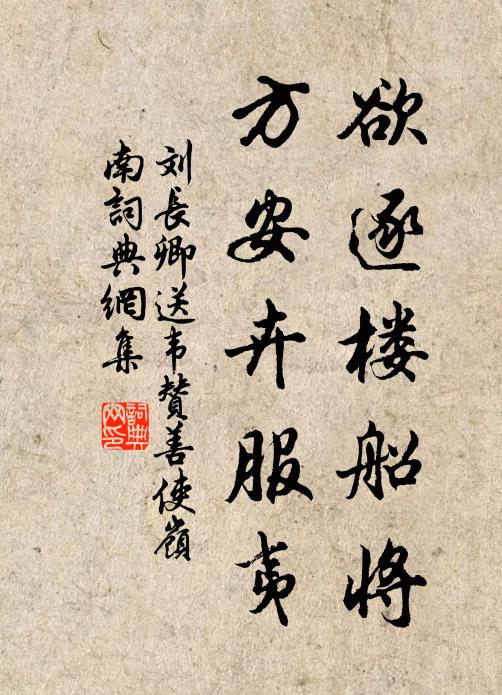 欲逐楼船将
方安卉服夷
刘長卿送韦賛善使嶺
南詞典網集
詞典
网印